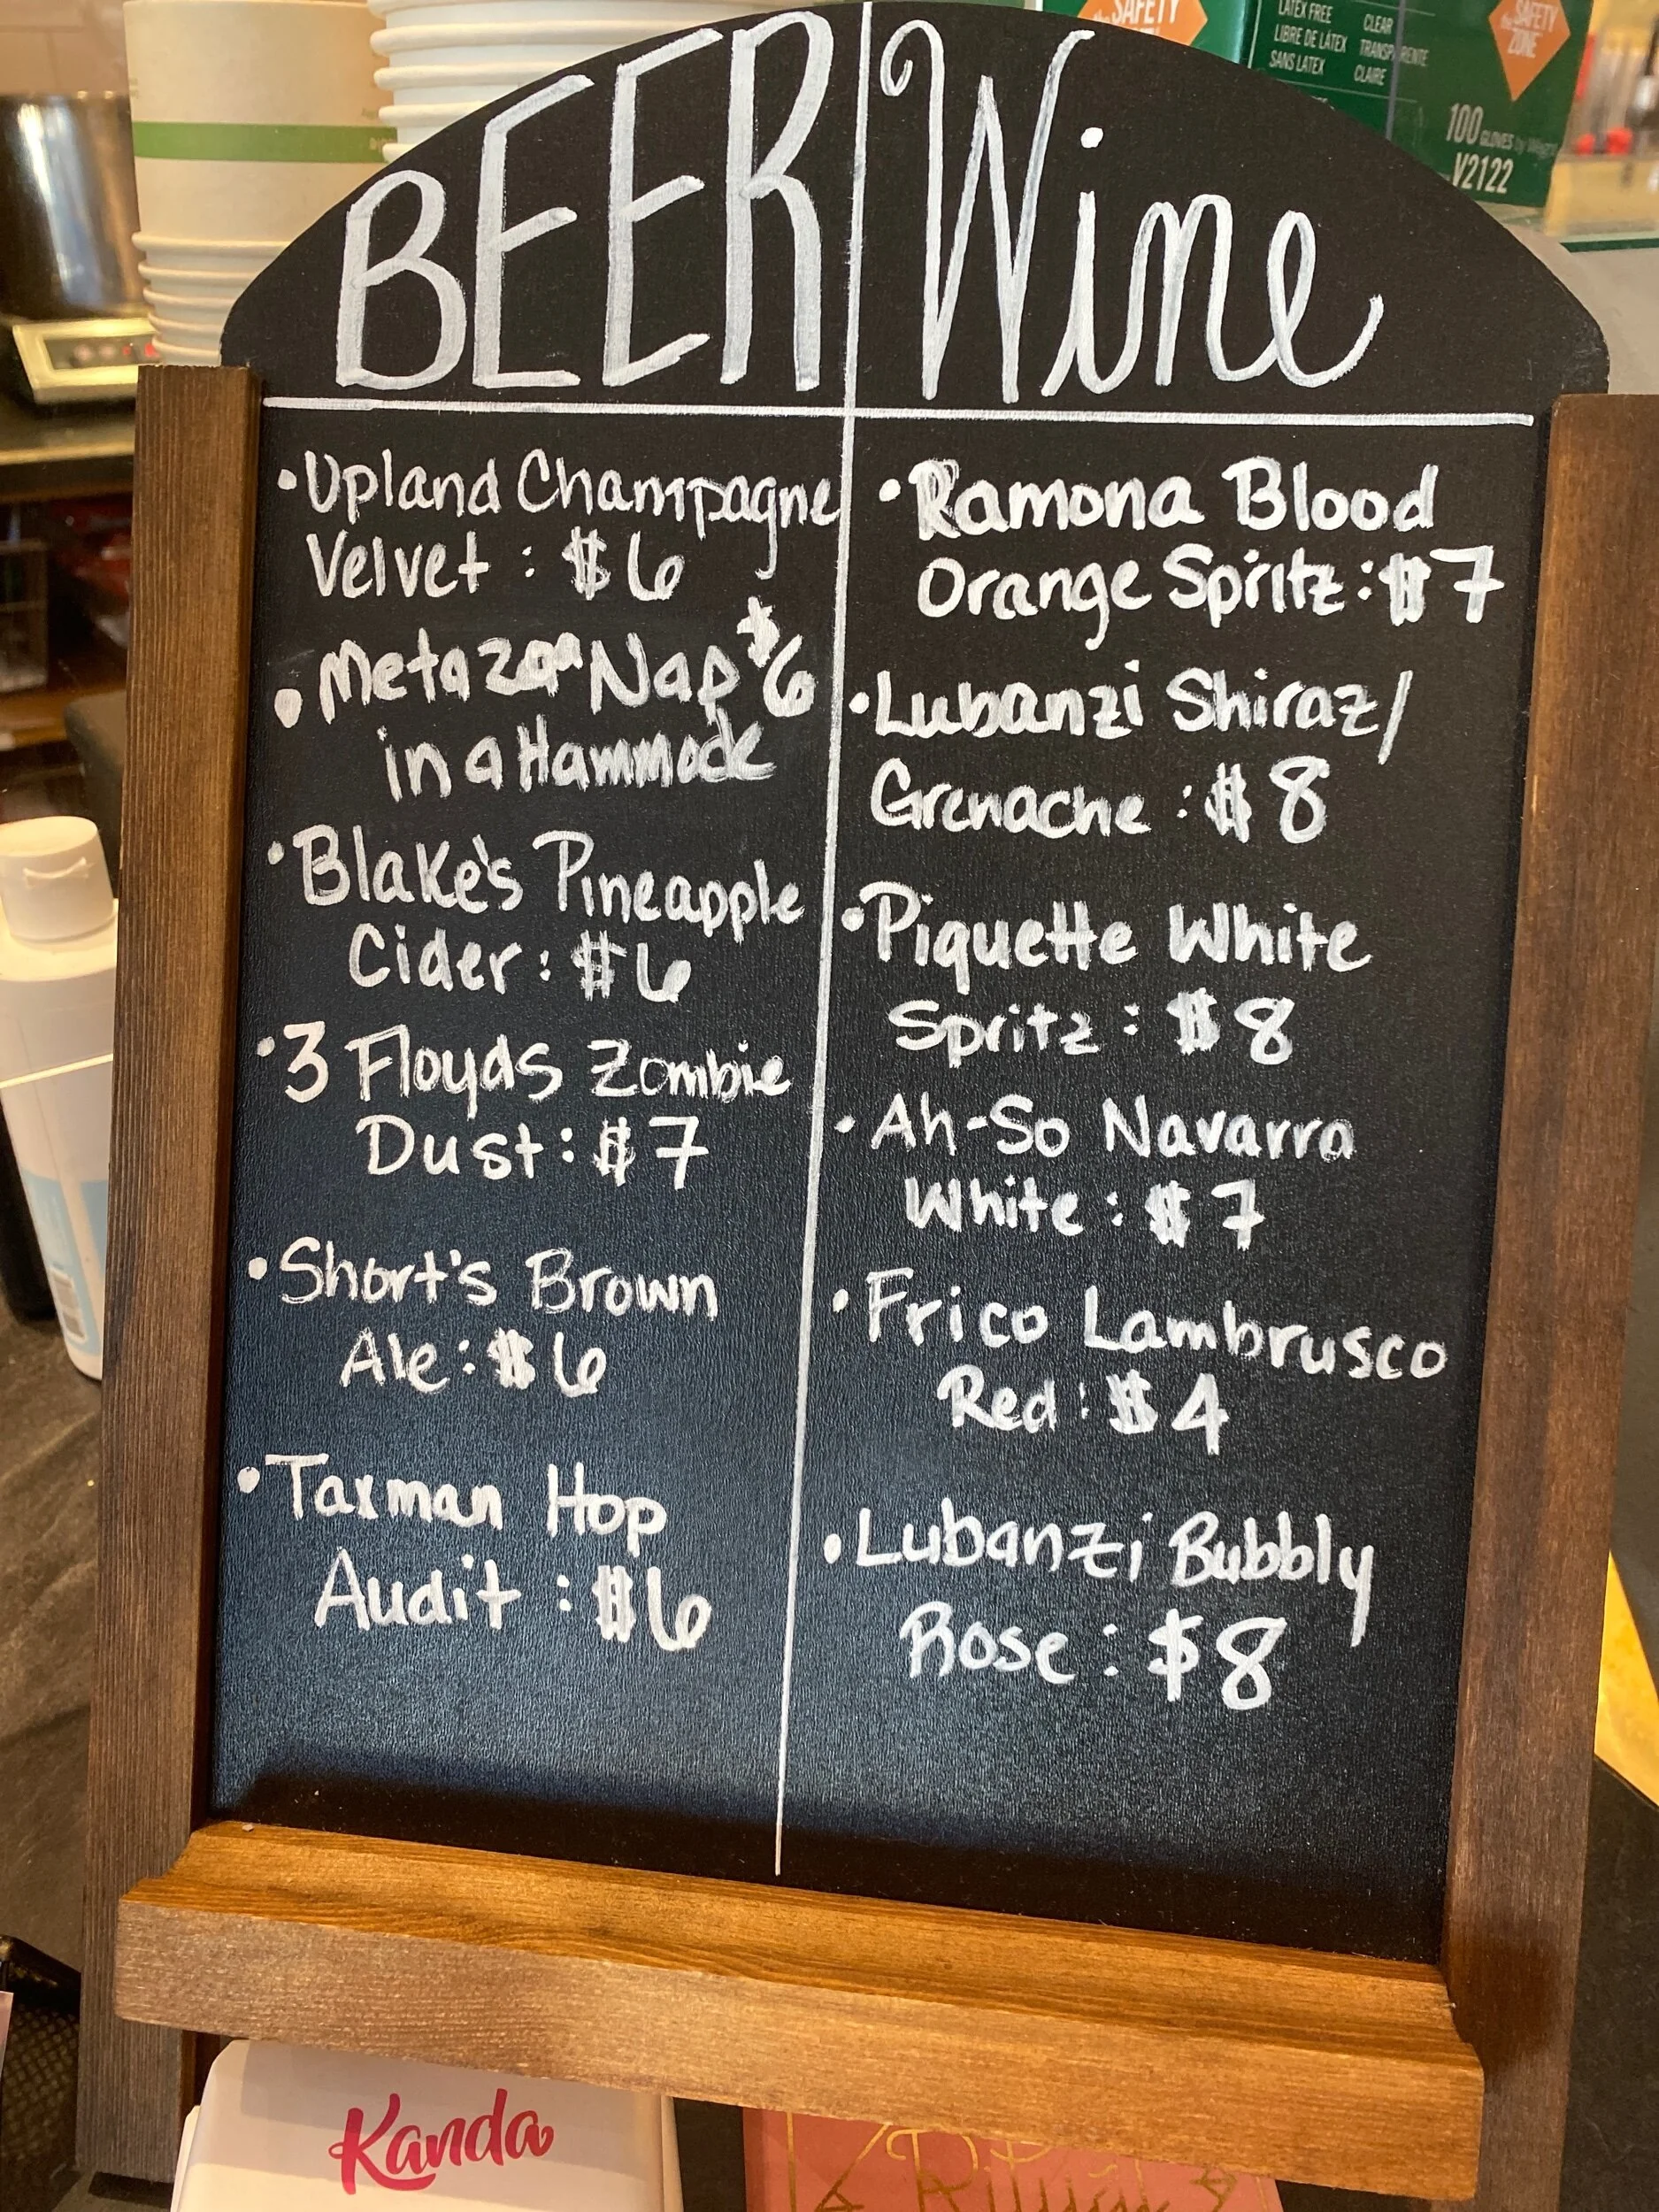 the SAFETY
LATEX FREE CLEAR
LIBRE DE LÁTEX TRANSPARENTE
SANS LATEX CLAIRE
the SAFETY
ZONE
100 GLOVES
V2122
BEER Wine
•Upland Champagne
Velvet : $6
•Metazoa Nap $6
in a Hammock
•Blake's Pineapple
Cider: $6
•3 Floyds Zombie
Dust: $7
•Short's Brown
Ale: $6
•Taxman Hop
Audit : $6
•Ramona Blood
Orange Spritz: $7
•Lubanzi Shiraz/
Grenache : $8
•Piquette White
Spritz : $8
•Ah-So Navarra
White : $7
•Frico Lambrusco
Red : $4
•Lubanzi Bubbly
Rose : $8
Kanda
Ritual